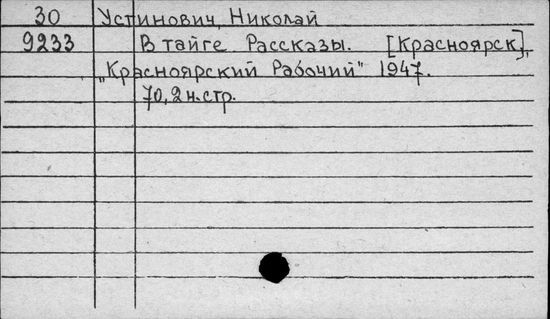 30 Устинович, Николай
9233 В тайге Рассказы. [Красноярск],
„Красноярский Рабочий" 1947.
70, 2 н. стр.